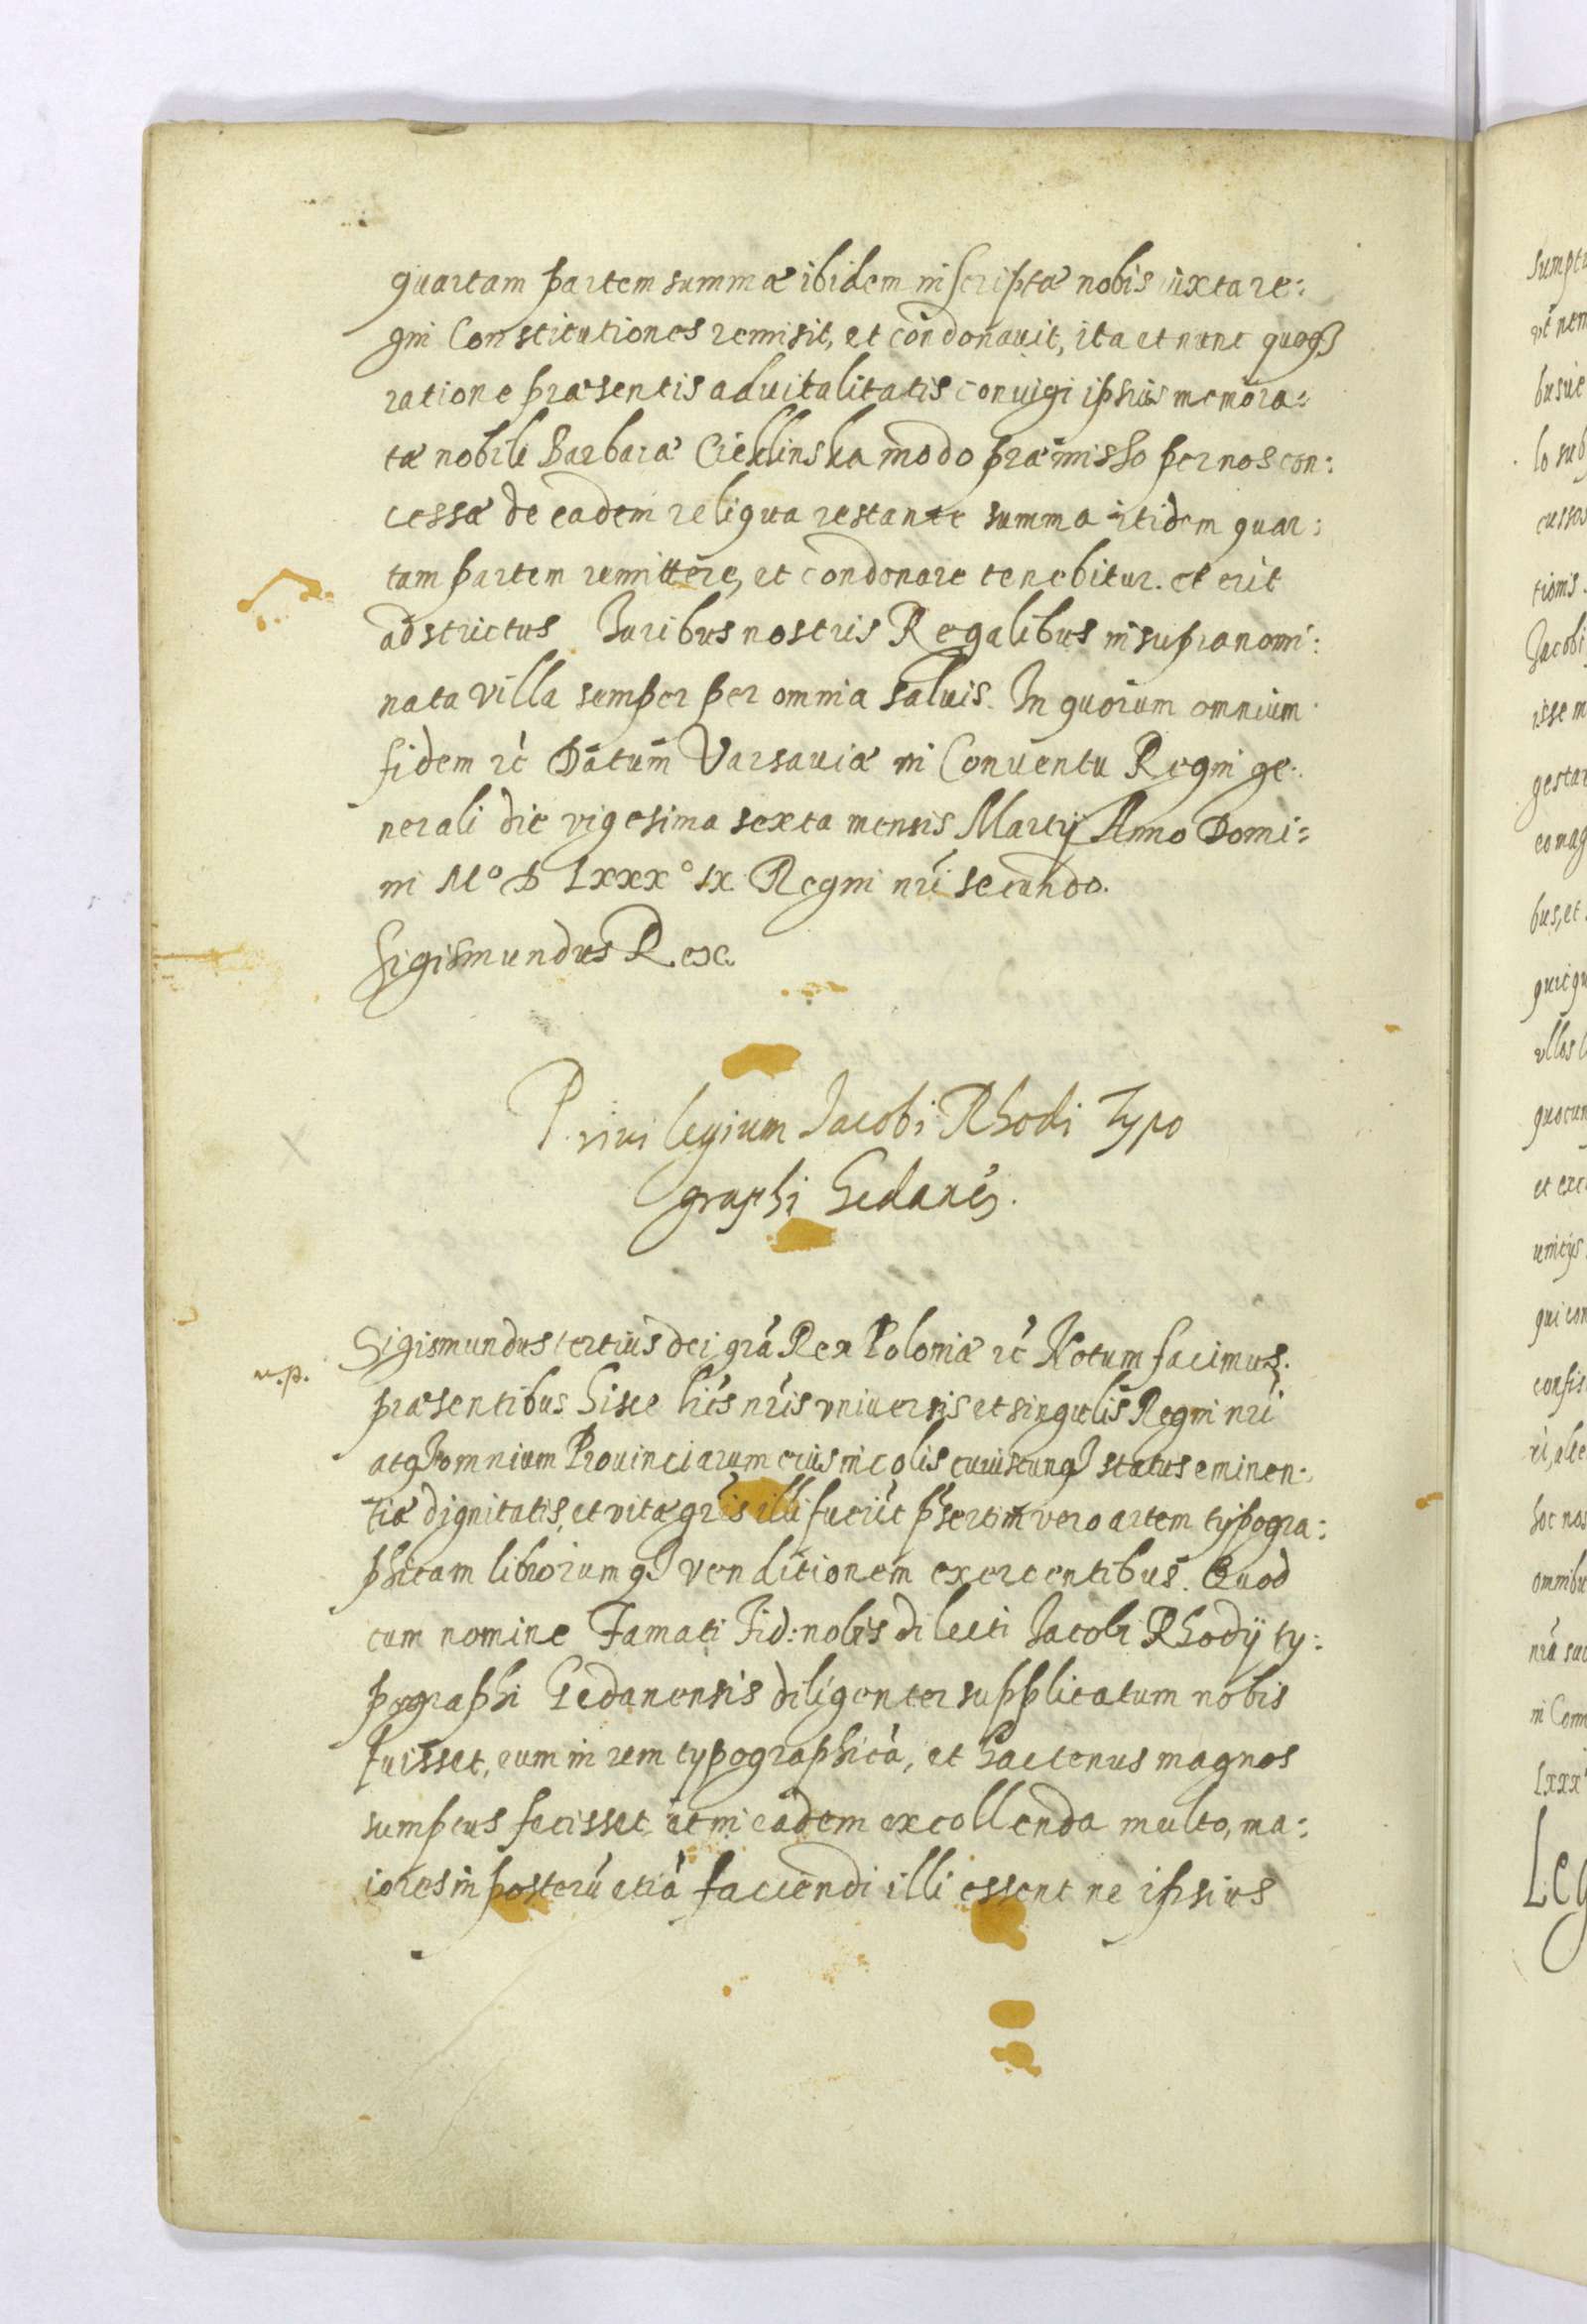 quartam partem summæ ibidem inscriptæ nobis iuxta re:
gni Constitutiones remisit, et condonauit, ita et nunc quoqȝ
ratione præsentis aduitalitatis coniugi ipsius memora:
tæ nobili Barbaræ Cieklinska modo præmisso per nos con:
cessæ de eadem reliqua restante summa itidem quar:
tam partem remittere, et condonare tenebitur. et erit
adstrictus Juribus nostris Regalibus in supranomi:
nata villa semper per omnia saluis. In quorum omnium
fidem rc̀ Datum Varsauiæ in Conuentu Regni ge:
nerali die vigesima sexta mensis Martij Anno Domi:
ni Mº D Lxxxº ix Regni nr̃i secundo.
Sigismundus Rex.
Priuilegium Jacobi Rhodi Typo
graphi Gedanẽs.
Sigismundus tertius dei grã Rex Poloniæ rc̀ Notum facimus
n.p.
præsentibus hisce lr̃is nr̃is vniuersis et singulis Regni nr̃i
atqȝ omnium Prouinciarum eius incolis cuiuscunqȝ status eminen:
tiæ dignitatis, et vitæ gr̃is illi fuerĩt p̃sertim vero artem typogra:
phicam librorumqȝ venditionem exercentibus. Quod
cum nomine Famati Fid: nobis dilecti Jacobi Rhodij ty:
pographi Gedanensis diligenter supplicatum nobis
fuisset, eum in rem typographicã, et hactenus magnos
sumptus fecisset et in eadem excollenda multo, ma:
iores in posterũ etiã faciendi illi essent ne ipsius